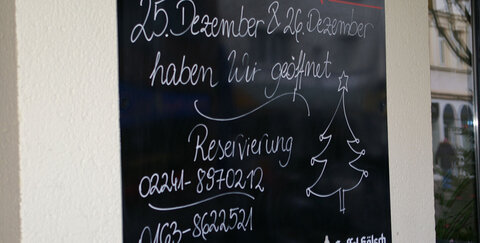 25. Dezember & 26. Dezember
haben Wir geöffnet
Reservierung
02241-8970212
0163-8622521
Gaffel Kölsch